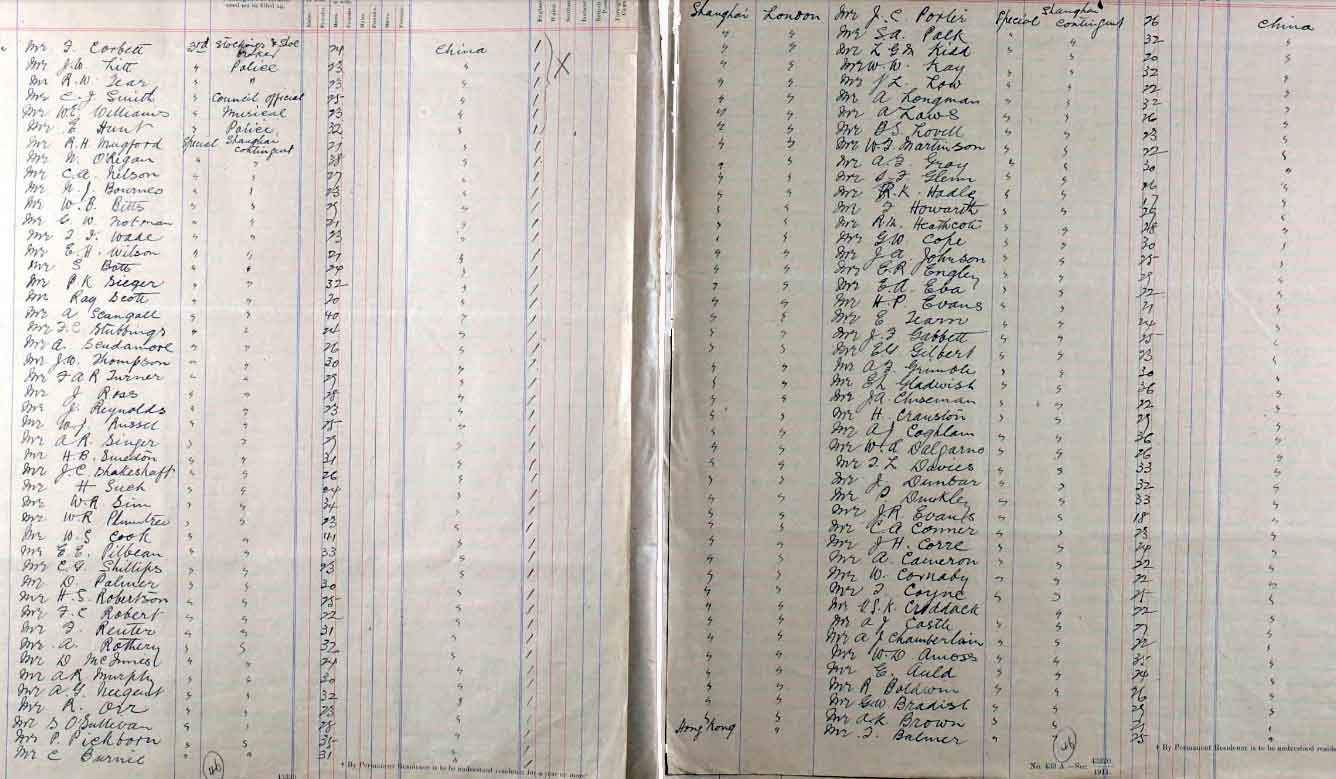 Mr F. Corbett 3rd Stockings & Shoe 29 China 1
Mr J.W. Litt " Police 23 " 1 X
Mr R.W. Tear " " 23 " 1
Mr C.J. Smith " Council official 25 " 1
Mr W.E. Williams " Musical 23 " 1
Mr E Hunt " Police 32 " 1
Mr R.H Mugford Special Shanghai contingent 21 1
Mr W. O'Regan " " 38 " 1
Mr C.A. Nelson " " 27 " 1
Mr N. J. Bournes " " 23 " 1
Mr W.B. Bitts " " 29 " 1
Mr C W Notman " " 21 " 1
Mr F. J. Wade " " 23 " 1
Mr E.H. Wilson " " 21 " 1
Mr S Bott " " 24 " 1
Mr P.K Sieger " " 32 " 1
Mr Rag Scott " " 20 " 1
Mr A Scangall " " 40 " 1
Mr F.C Stubbings " " 24 " 1
Mr A. Scudamore " " 26 " 1
Mr J.W. Thompson " " 30 " 1
Mr F.A.R Turner " " 29 " 1
Mr J Ross " " 28 " 1
Mr J. Reynolds " " 23 " 1
Mr W.J. Russell " " 25 " 1
Mr A R. Singer " " 29 " 1
Mr H.B. Smeeton " " 31 " 1
Mr J.C. Shakeshaft " " 26 " 1
Mr H Such " " 24 " 1
Mr W.R Sim " " 34 " 1
Mr W R Plumtree " " 23 " 1
Mr W.S Cook " " 41 " 1
Mr E.E. Pilbean " " 33 " 1
Mr C.G. Phillips " " 23 " 1
Mr D. Palmer " " 30 " 1
Mr H.S. Robertson " " 25 " 1
Mr F.C Robert " " 22 " 1
Mr F. Reuter " " 31 " 1
Mr A. Rothery " " 32 " 1
Mr D McInnes " " 24 " 1
Mr A.R Murphy " " 30 " 1
Mr A.G. Nugent " " 32 " 1
Mr R. Orr " " 23 " 1
Mr S O'Sullivan " " 28 " 1
Mr P. Pichborn " " 35 " 1
Mr C Burnie " " 31 " 1
† By Permanent Residence is to be understood residence for a year or more
Shanghai London Mr J. C. Porter Special Shanghai Contingent 26 China
" " Mr S.A. Polk " " 32 "
" " Mr L G M Kidd " " 20 "
" " Mr W.W. Kay " " 32 "
" " Mr J L. Low " " 22 "
" " Mr A Longman " " 32 "
" " Mr A Laws " " 26 "
" " Mr B S. Lovell " " 23 "
" " Mr W.F. Martinson " " 22 "
" " Mr A.F. Gray " " 30 "
" " Mr D.F Glenn " " 26 "
" " Mr R.K. Hadley " " 17 "
" " Mr F Howarth " " 29 "
" " Mr R.M. Heathcote " " 28 "
" " Mr G.W Cope " " 30 "
" " Mr J.A. Johnson " " 25 "
" " Mr E.R Engley " " 29 "
" " Mr E.A. Eva " " 22 "
" " Mr H.P. Evans " " 21 "
" " Mr E Fearn " " 24 "
" " Mr J.F Gabbett " " 25 "
" " Mr E.W Gilbert " " 23 "
" " Mr A.F. Grimble " " 30 "
" " Mr G L Gladwish " " 36 "
" " Mr J.A. Chiseman " " 22 "
" " Mr H. Cranston " " 29 "
" " Mr A.J Coghlam " " 36 "
" " Mr W.A Dalgarno " " 26 "
" " Mr F.L Davies " " 33 "
" " Mr J. Dunbar " " 32 "
" " Mr S Dunkley " " 33 "
" " Mr J.R. Evans " " 18 "
" " Mr C A Conner " " 23 "
" " Mr J H. Corre " " 24 "
" " Mr A. Cameron " " 22 "
" " Mr W. Cornaby " " 22 "
" " Mr F. Coyne " " 25 "
" " Mr V.S.K. Craddack " " 22 "
" " Mr A J. Castle " " 27 "
" " Mr A J Chamberlain " " 22 "
" " Mr W.D Amoss " " 35 "
" " Mr E. Auld " " 24 "
" " Mr R Baldwin " " 26 "
" " Mr G.W Bradist " " 29 "
" " Mr A.K Brown " " 21 "
Hong Kong " Mr F. Balmer " " 25 "
† By Permanent Residence is to be understood reside
No. 630 A —Sec. 1911.